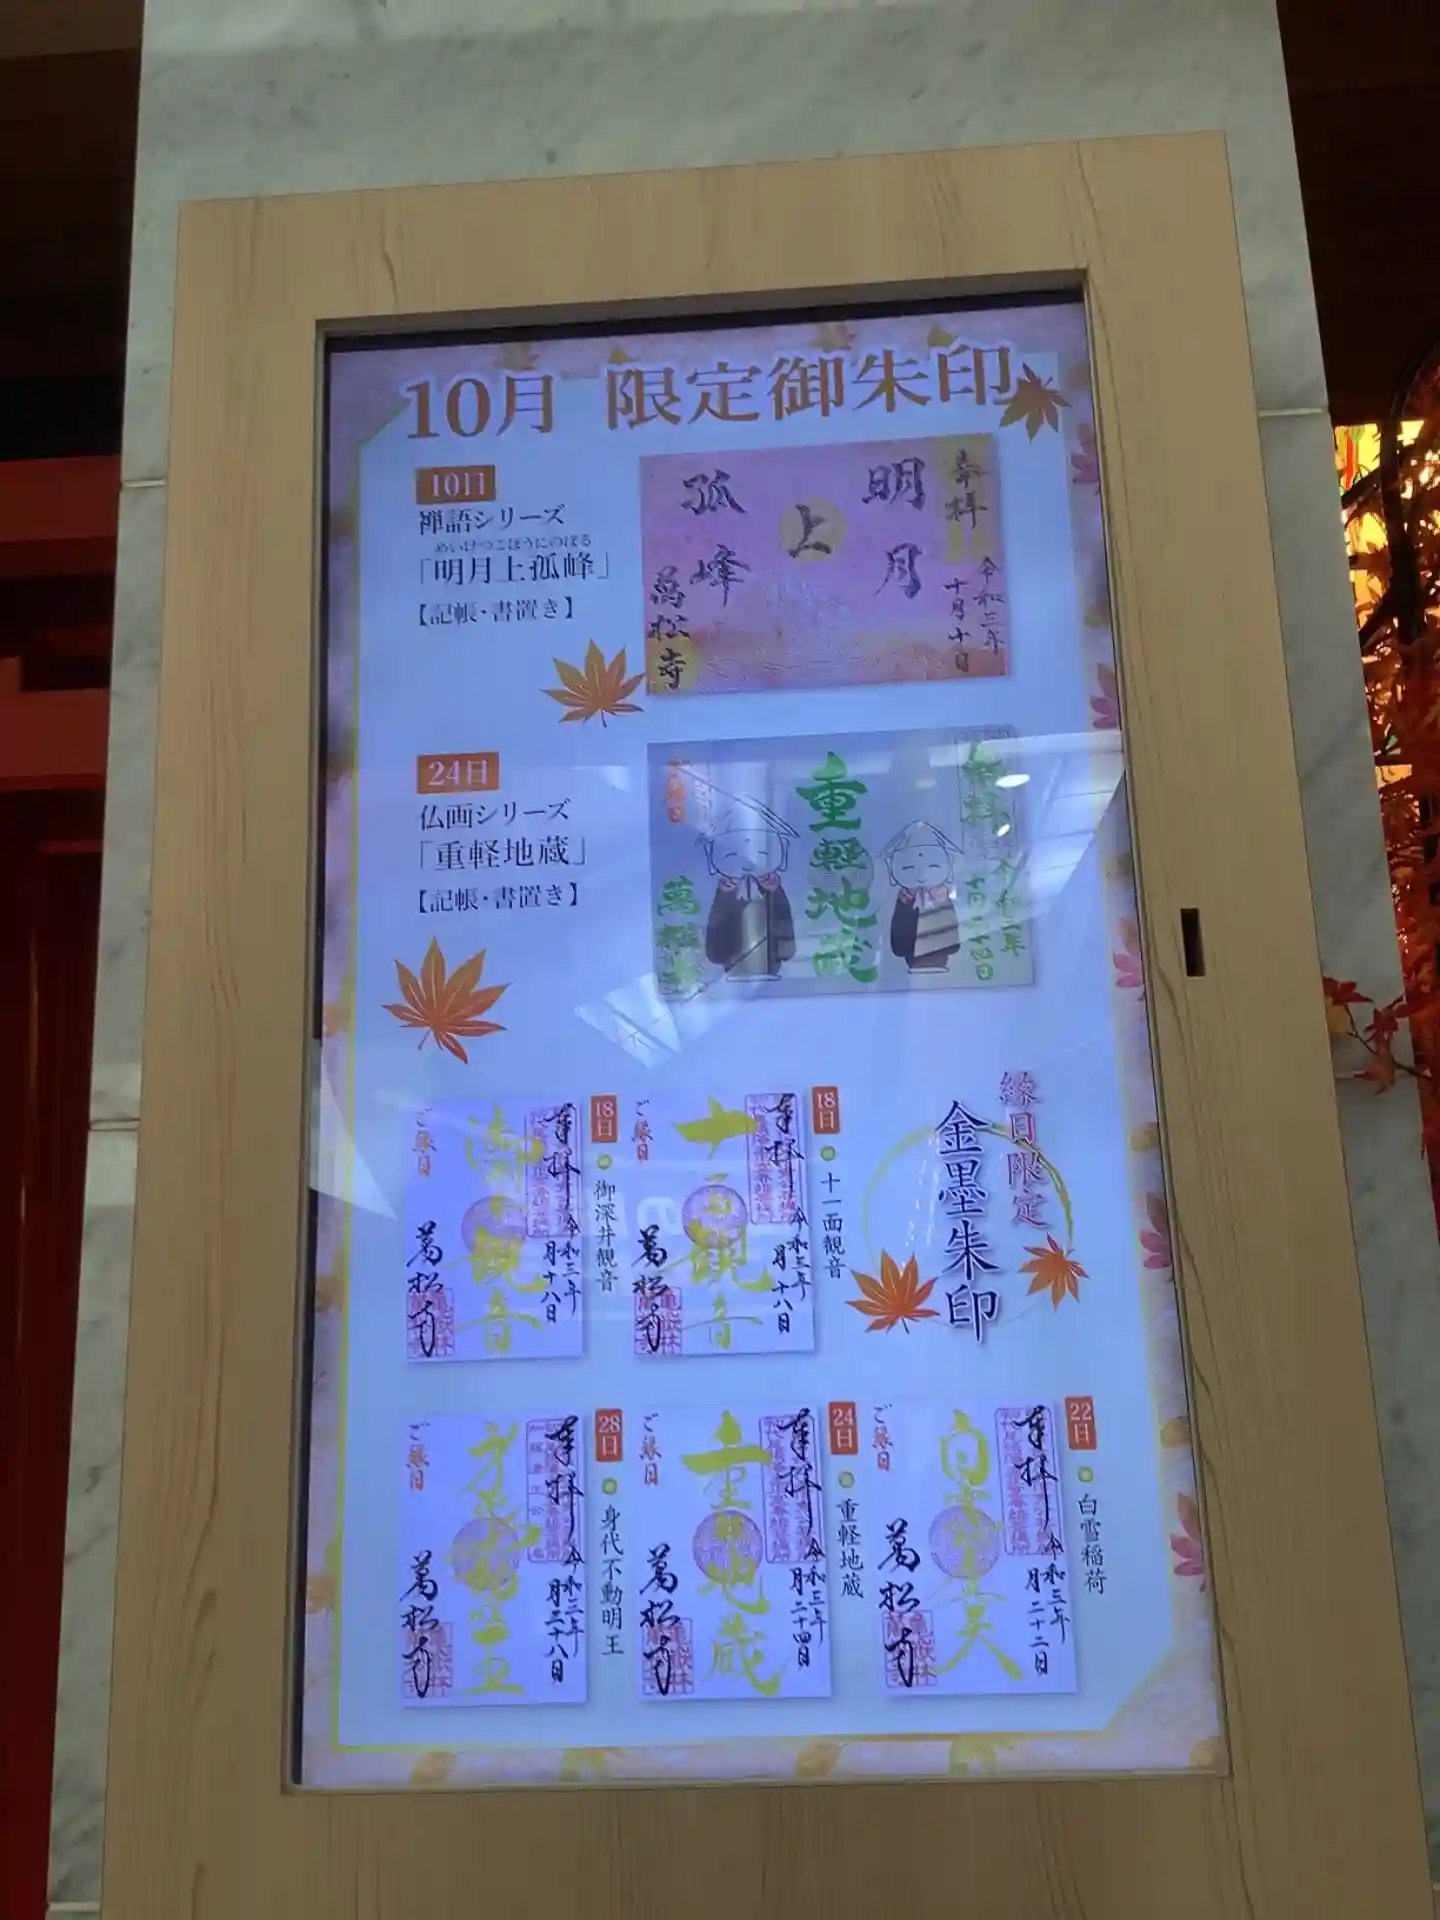 10月 限定御朱印
10日
禅語シリーズ
めいげつこほうにのぼる
「明月上孤峰」
【記帳・書置き】
奉拝
令和三年
十月十日
明月
上
孤峰
萬松寺
24日
仏画シリーズ
「重軽地蔵」
【記帳・書置き】
重軽地蔵
萬松寺
縁日限定
金墨朱印
18日
十一面観音
奉拝
令和三年
月十八日
観音
萬松寺
ご縁日
18日
御深井観音
奉拝
令和三年
月十八日
観音
萬松寺
ご縁日
22日
白雪稲荷
奉拝
令和三年
月二十二日
萬松寺
ご縁日
24日
重軽地蔵
奉拝
令和三年
月二十四日
重軽地蔵
萬松寺
ご縁日
28日
身代不動明王
奉拝
令和三年
月二十八日
萬松寺
ご縁日